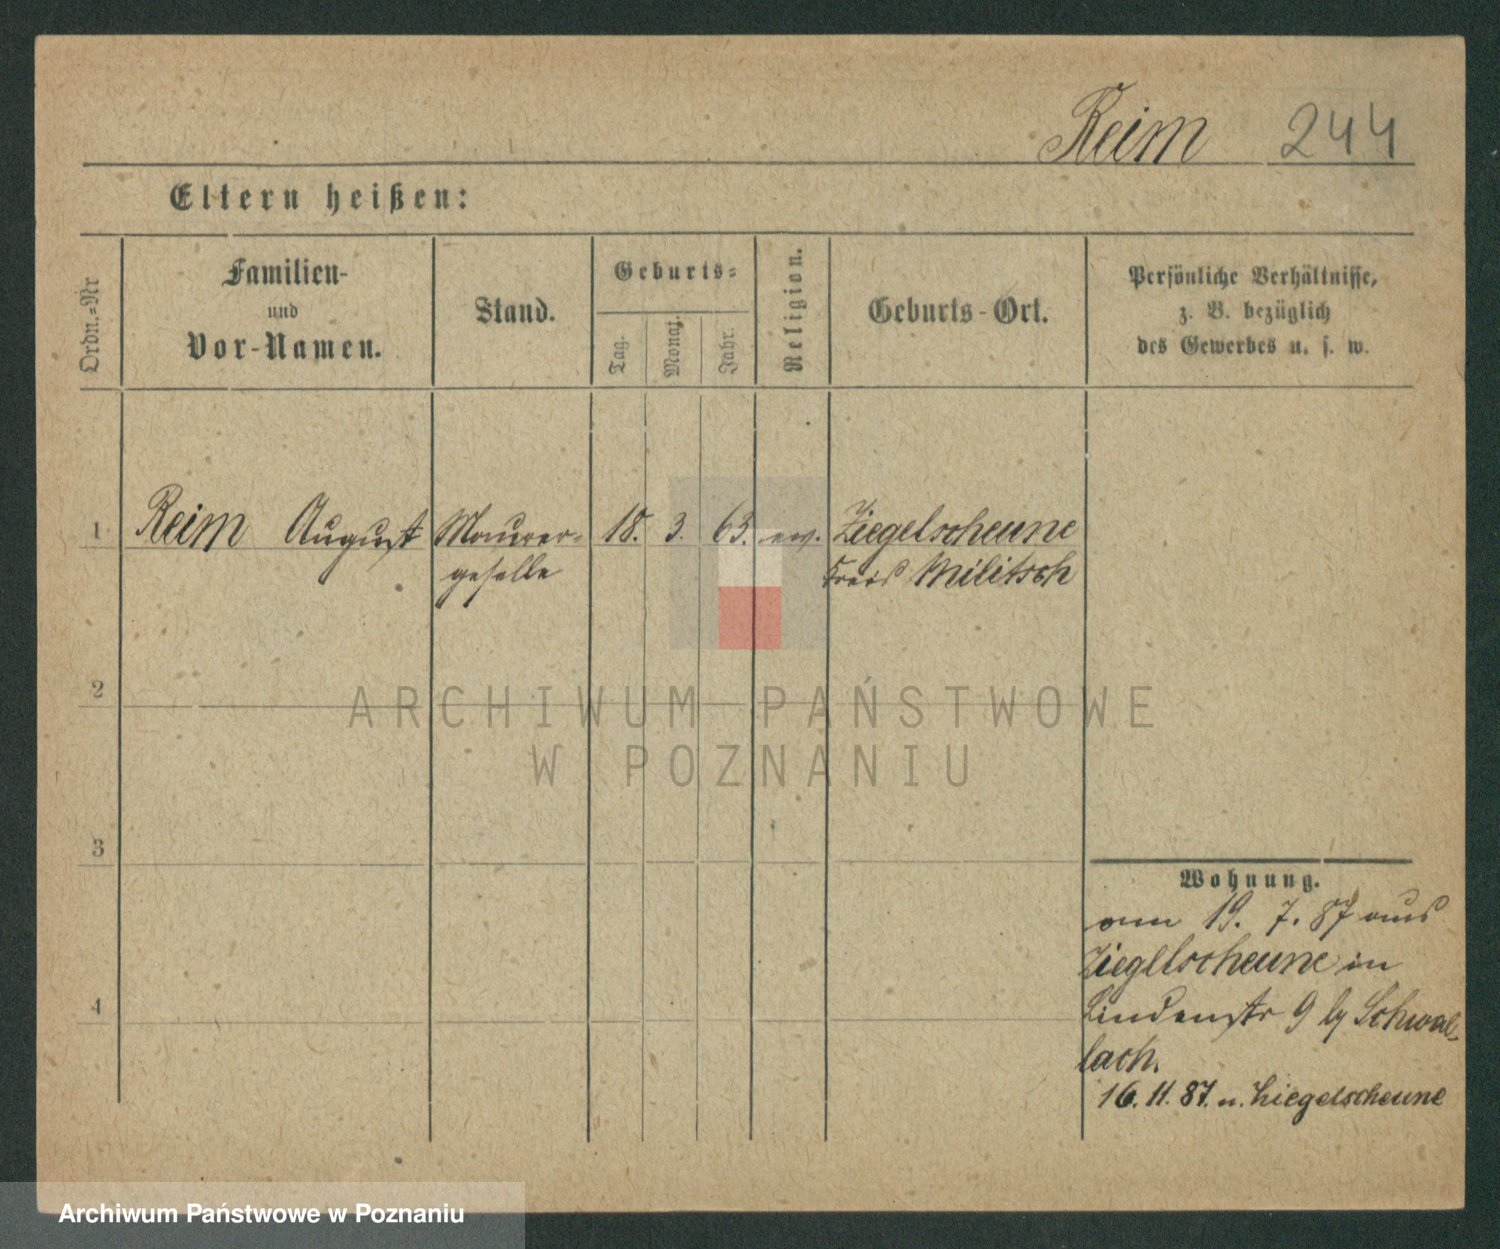 Reim 244
Eltern heißen:
Ordn.-Nr
Familien-
und
Vor-Namen.
Stand.
Geburts-
Tag.
Monat.
Jahr.
Religion.
Geburts-Ort.
Persönliche Verhältnisse,
z. B. bezüglich
des Gewerbes u. s. w.
1 Reim August Maurer- 18. 3. 63. ev. Ziegelscheune
geselle Kreis Militsch
2
ARCHIWUM PAŃSTWOWE
W POZNANIU
3
Wohnung.
am 19. 7. 87 aus
Ziegelscheune in
4
Lindenstr 9 by
lach.
16. 11. 87. n. Ziegelscheune
Archiwum Państwowe w Poznaniu